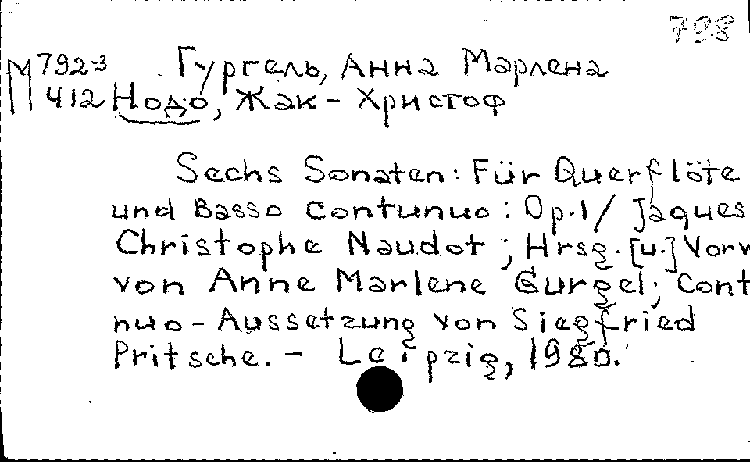 798
М 792-3 Гургель, Анна Марлена
412 Нодо, Жак - Христоф
Sechs Sonaten: Für Querflöte
und Basso contunuo: Op.1/ Jaques
Christophe Naudot; Hrsg. [u.] Vorw
von Anne Marlene Gurgel; Cont
nuo - Aussetzung von Siegfried
Pritsche. - Leipzig, 1980.